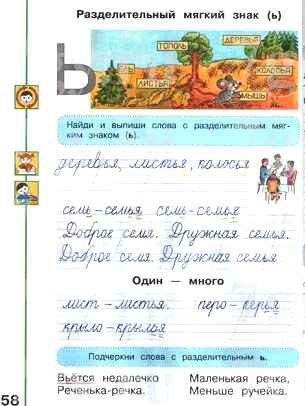 Разделительный мягкий знак (ь)
Ь
ТОПОЛЬ
ДЕРЕВЬЯ
ЕЛЬ
ЛИСТЬЯ
КОЛОСЬЯ
МЫШЬ
Найди и выпиши слова с разделительным мяг-
ким знаком (ь).
деревья, листья, колосья
семь – семья семь – семья
Доброе семя. Дружная семья.
Доброе семя. Дружная семья
Один — много
лист – листья. перо – перья
крыло – крылья
Подчеркни слова с разделительным ь.
Вьётся недалечко
Маленькая речка,
Реченька-речка.
Меньше ручейка.
58